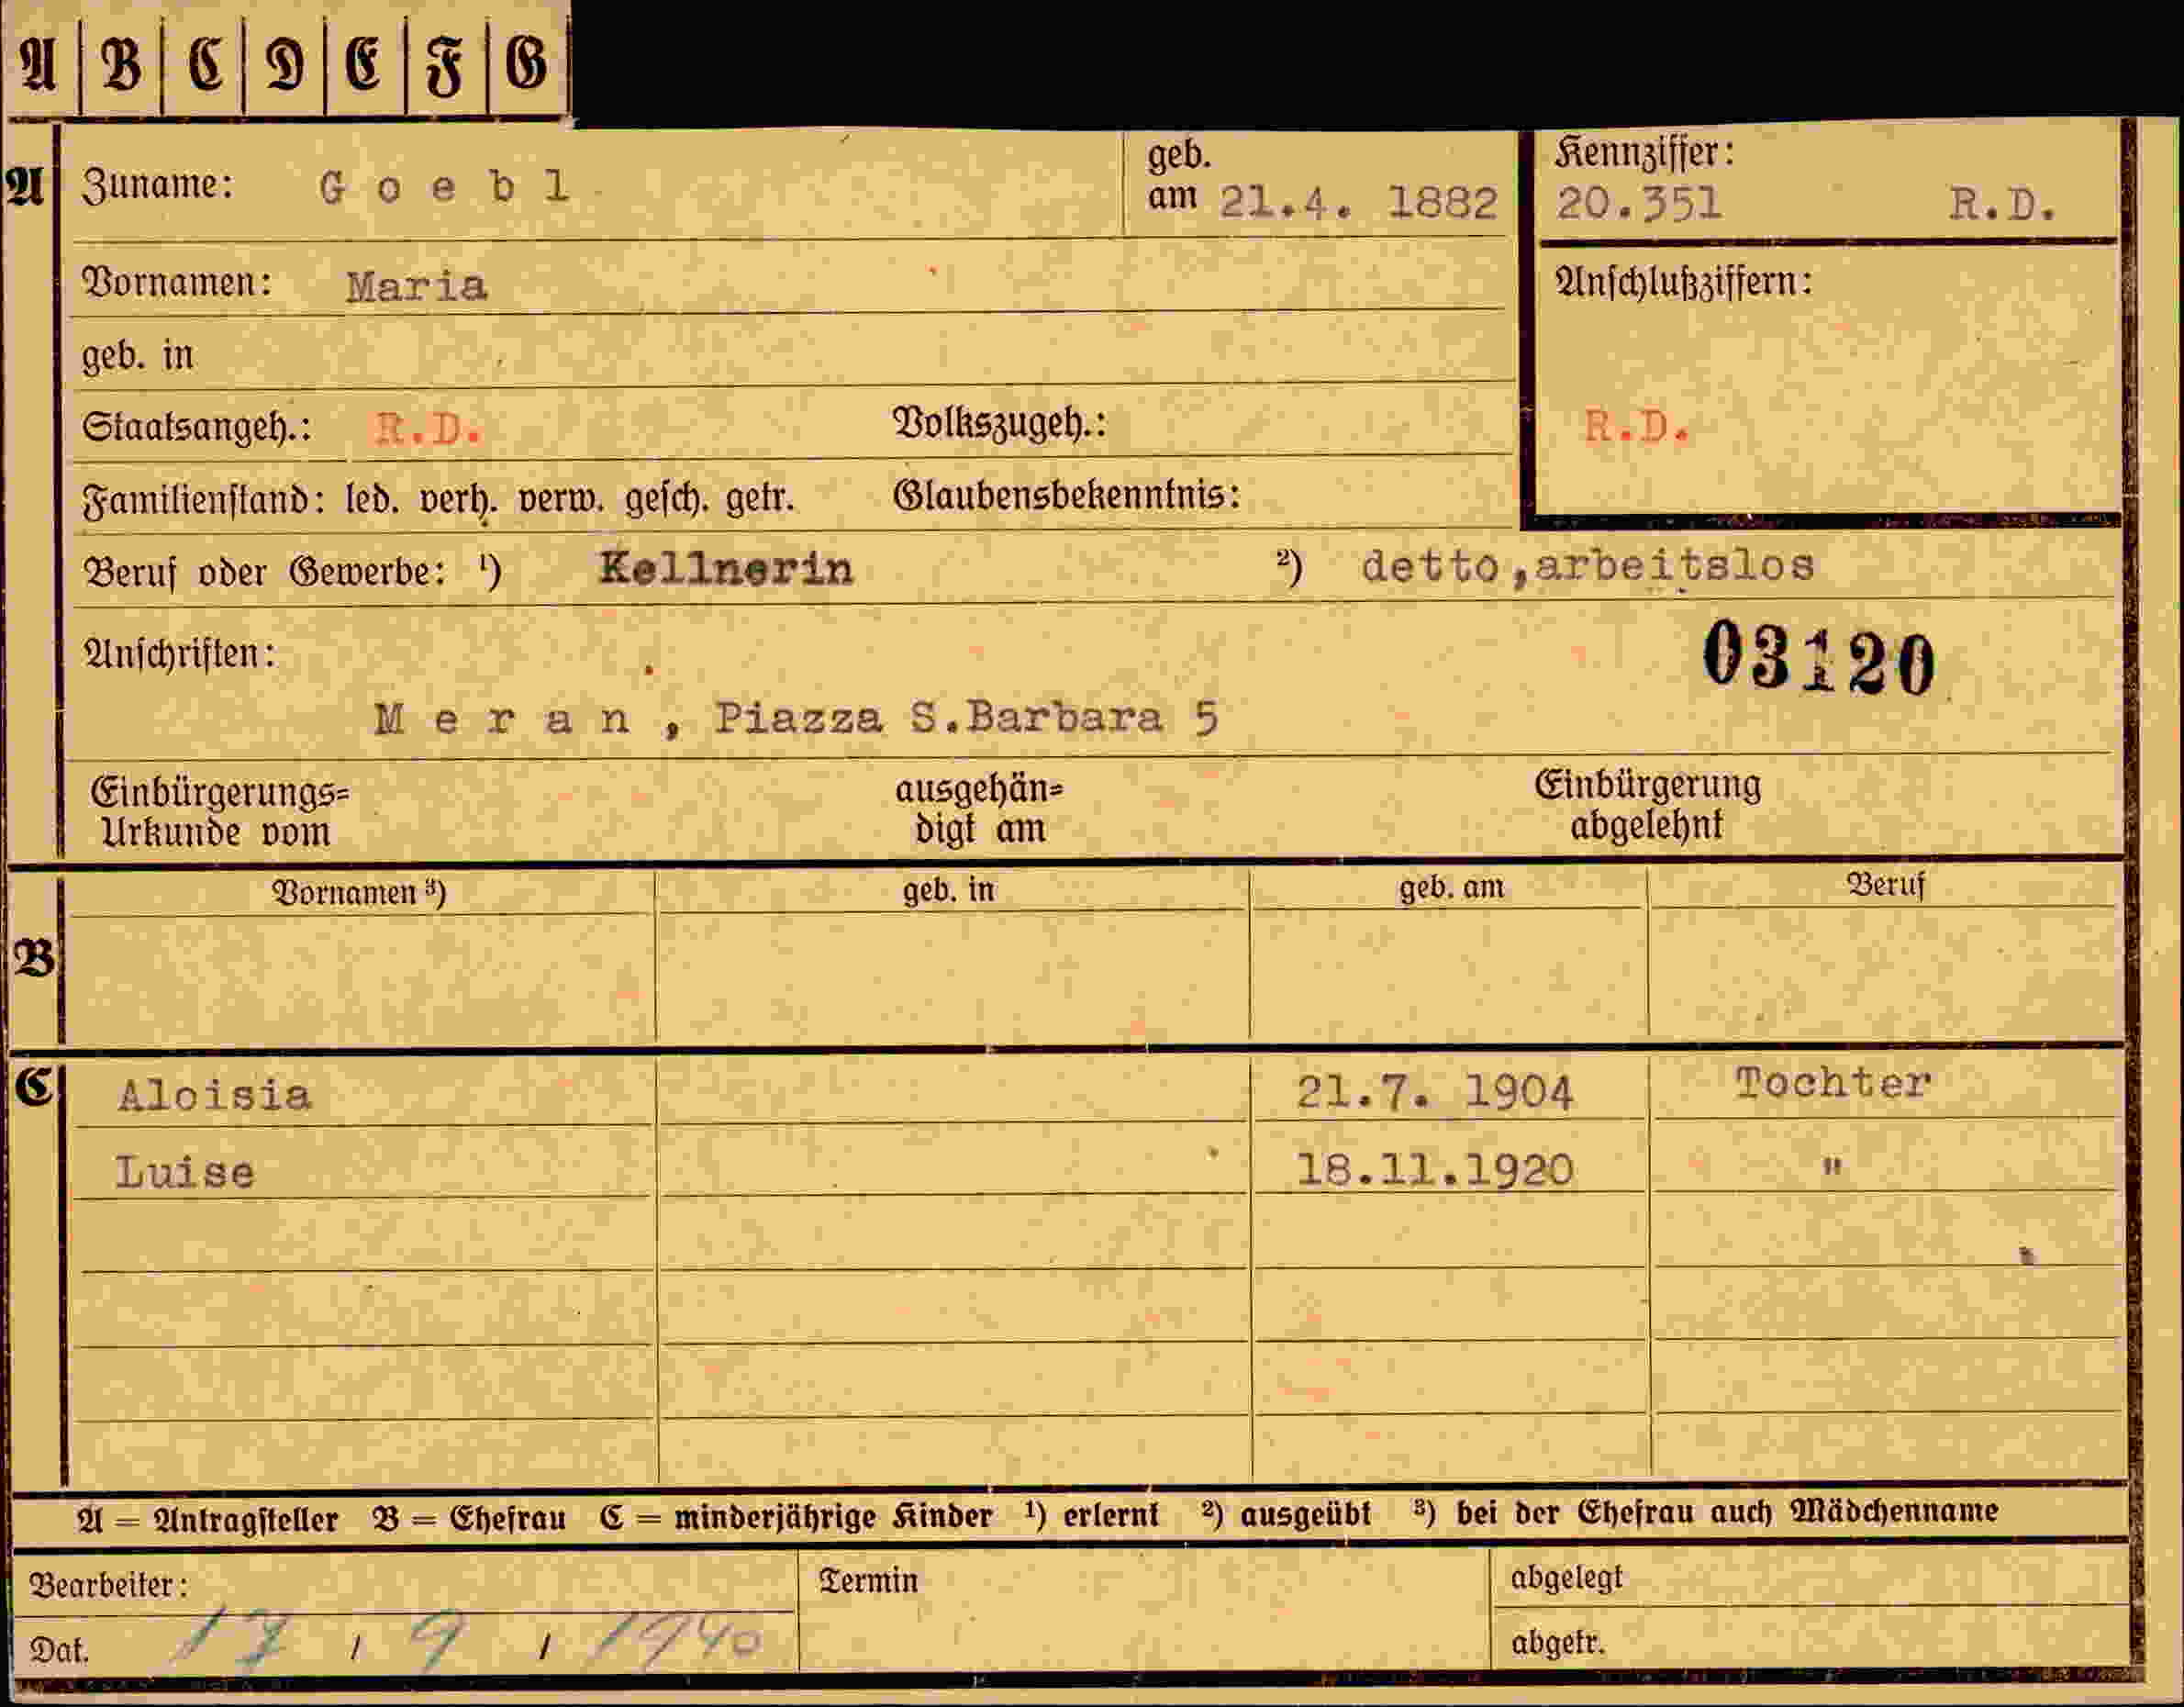 A B C D E F G
A Zuname: Goebl geb. am 21.4. 1882 Kennziffer: 20.351 R.D.
Vornamen: Maria Anschlußziffern:
geb. in
Staatsangeh.: R.D. Volkszugeh.: R.D.
Familienstand: led. verh. verw. gesch. getr. Glaubensbekenntnis:
Beruf oder Gewerbe: ¹) Kellnerin ²) detto,arbeitslos
Anschriften: 03120
Meran, Piazza S.Barbara 5
Einbürgerungs= ausgehän= Einbürgerung
Urkunde vom digt am abgelehnt
Vornamen ³) geb. in geb. am Beruf
B
C Aloisia 21.7. 1904 Tochter
Luise 18.11.1920 "
A = Antragsteller B = Ehefrau C = minderjährige Kinder ¹) erlernt ²) ausgeübt ³) bei der Ehefrau auch Mädchenname
Bearbeiter: Termin abgelegt
Dat. 17 / 9 / 1940 abgetr.